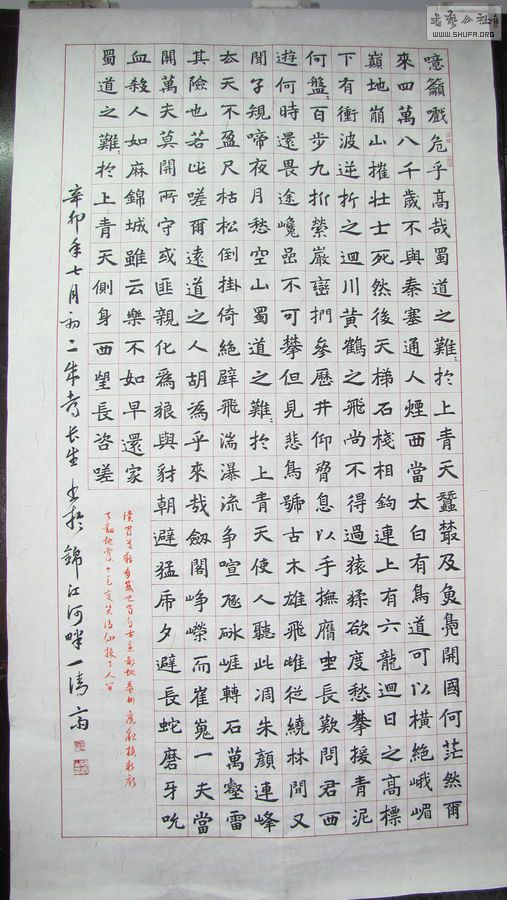 噫籲戲危乎高哉蜀道之難々於上青天蠶叢及魚鳧開國何茫然爾
來四萬八千歲不與秦塞通人煙西當太白有鳥道可以橫絕峨嵋
巔地崩山摧壯士死然後天梯石棧相鉤連上有六龍迴日之高標
下有衝波逆折之迴川黃鶴之飛尚不得過猿猱欲度愁攀援青泥
何盤々百步九折縈巖巒捫參歷井仰脅息以手撫膺坐長歎問君西
遊何時還畏途巉嵒不可攀但見悲鳥號古木雄飛雌從繞林間又
聞子規啼夜月愁空山蜀道之難々於上青天使人聽此凋朱顏連峰
去天不盈尺枯松倒掛倚絕壁飛湍瀑流爭喧豗砯崖轉石萬壑雷
其險也若此嗟爾遠道之人胡為乎來哉劍閣崢嶸而崔嵬一夫當
開萬夫莫開所守或匪親化為狼與豺朝避猛虎夕避長蛇磨牙吮
血殺人如麻錦城雖云樂不如早還家
蜀道之難々於上青天側身西望長咨嗟
辛卯年七月初二生書於錦江河畔一清齋
書藝公社
WWW.SHUFA.ORG